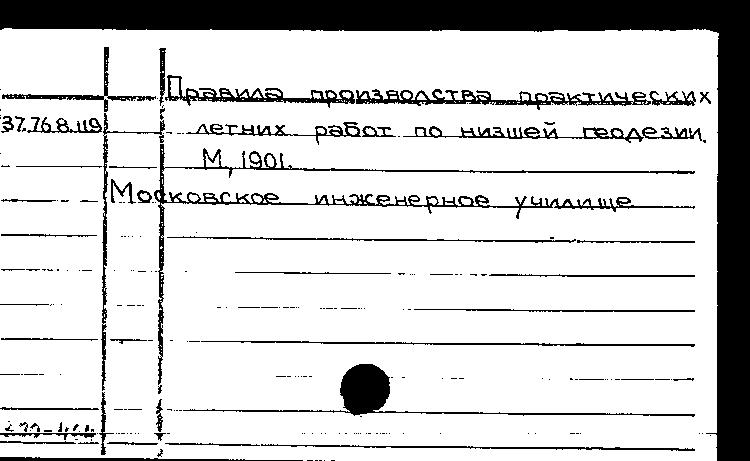 Правила производства практических
37.76.8.119 летних работ по низшей геодезии.
М., 1901.
Московское инженерное училище